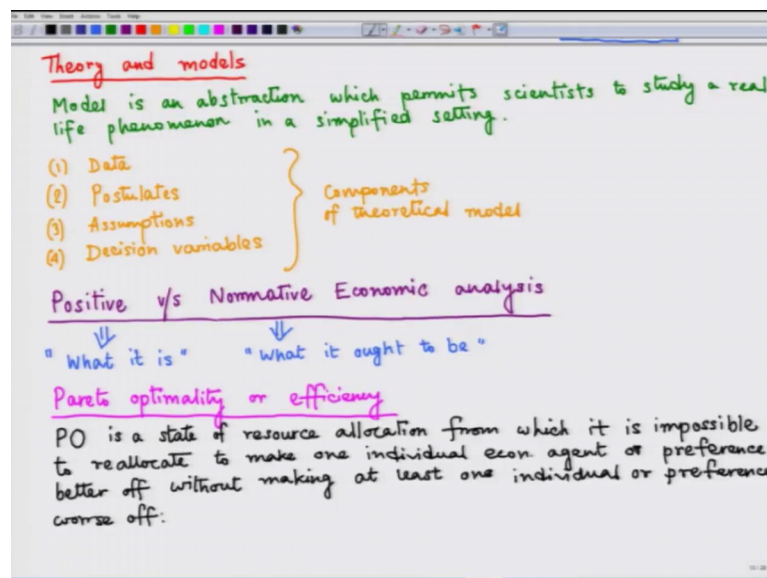 Theory and models
Model is an abstraction which permits scientists to study a real
life phenomenon in a simplified setting.
(1) Data
(2) Postulates
(3) Assumptions
(4) Decision variables
Components
of theoretical model
Positive v/s Normative Economic analysis
"What it is" "What it ought to be"
Pareto optimality or efficiency
PO is a state of resource allocation from which it is impossible
to reallocate to make one individual econ. agent or preference
better off without making at least one individual or preference
worse off: